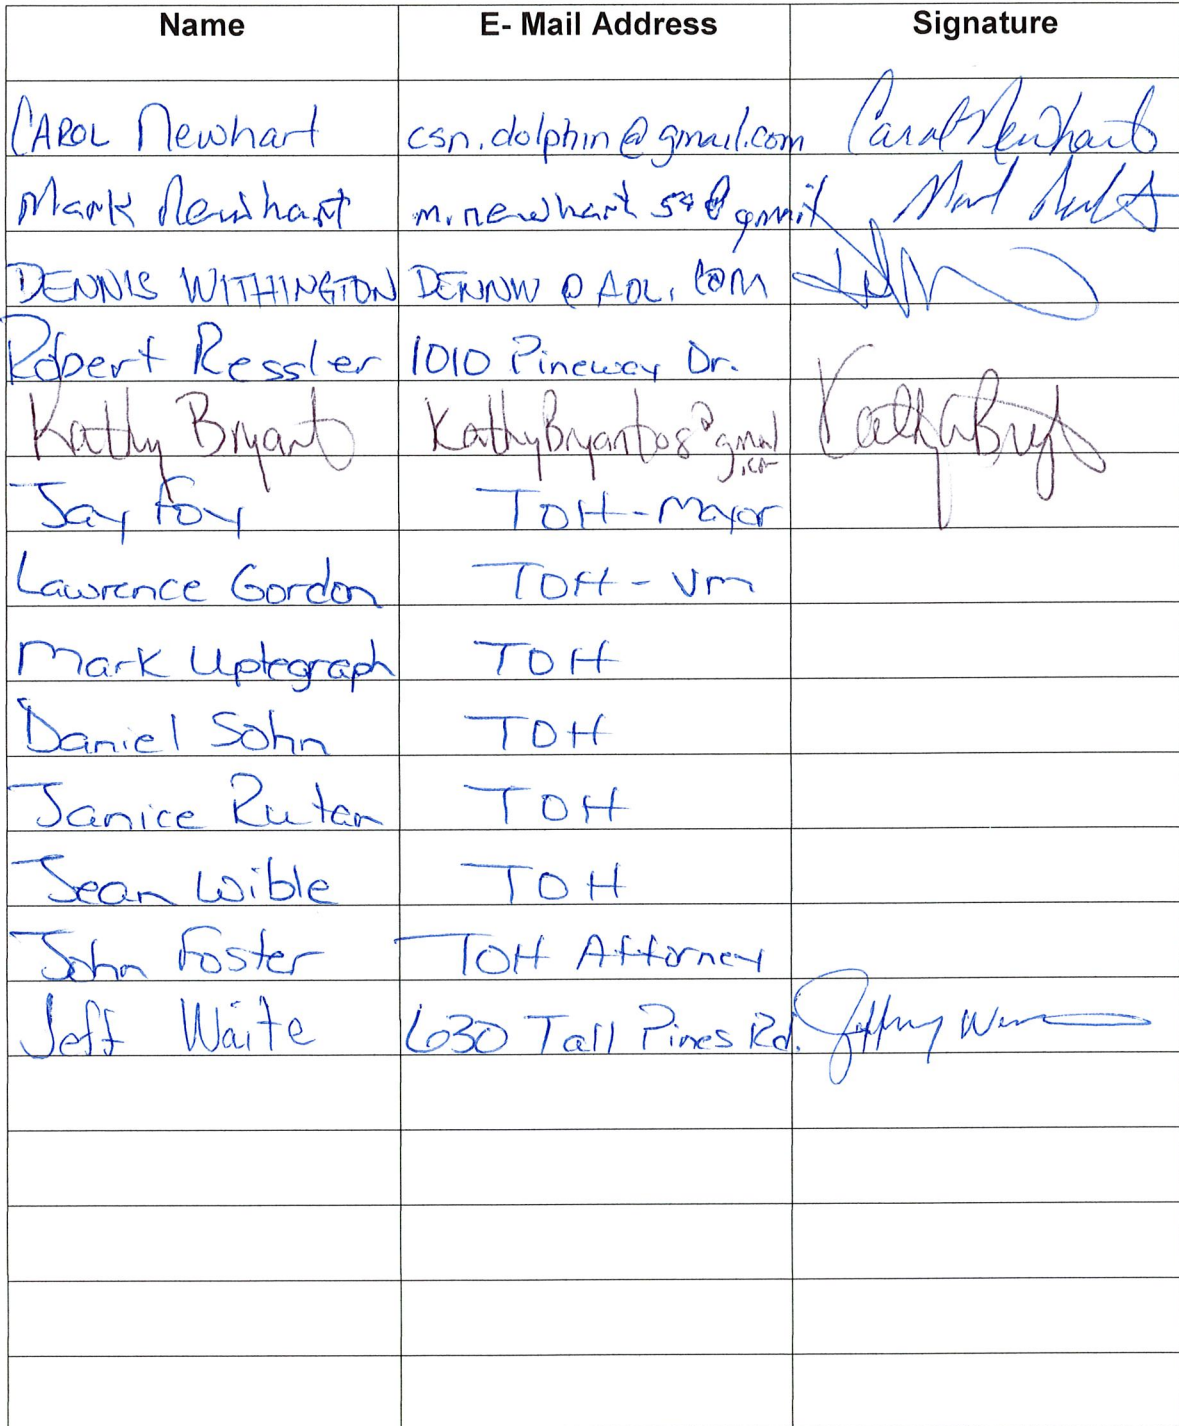 Name E- Mail Address Signature
CAROL Newhart csn.dolphin@gmail.com Carol Newhart
Mark Newhart m.newhart 54@gmail
DENNIS WITHINGTON DENNW @ AOL. COM
Robert Ressler 1010 Pineway Dr.
Kathy Bryant KathyBryant08@gmail
.com
Jay Foy TOH-Mayor
Lawrence Gordon TOH - Vm
Mark Uptegraph TOH
Daniel Sohn TOH
Janice Rutan TOH
Jean Wible TOH
John Foster TOH Attorney
Jeff Waite 630 Tall Pines Rd.